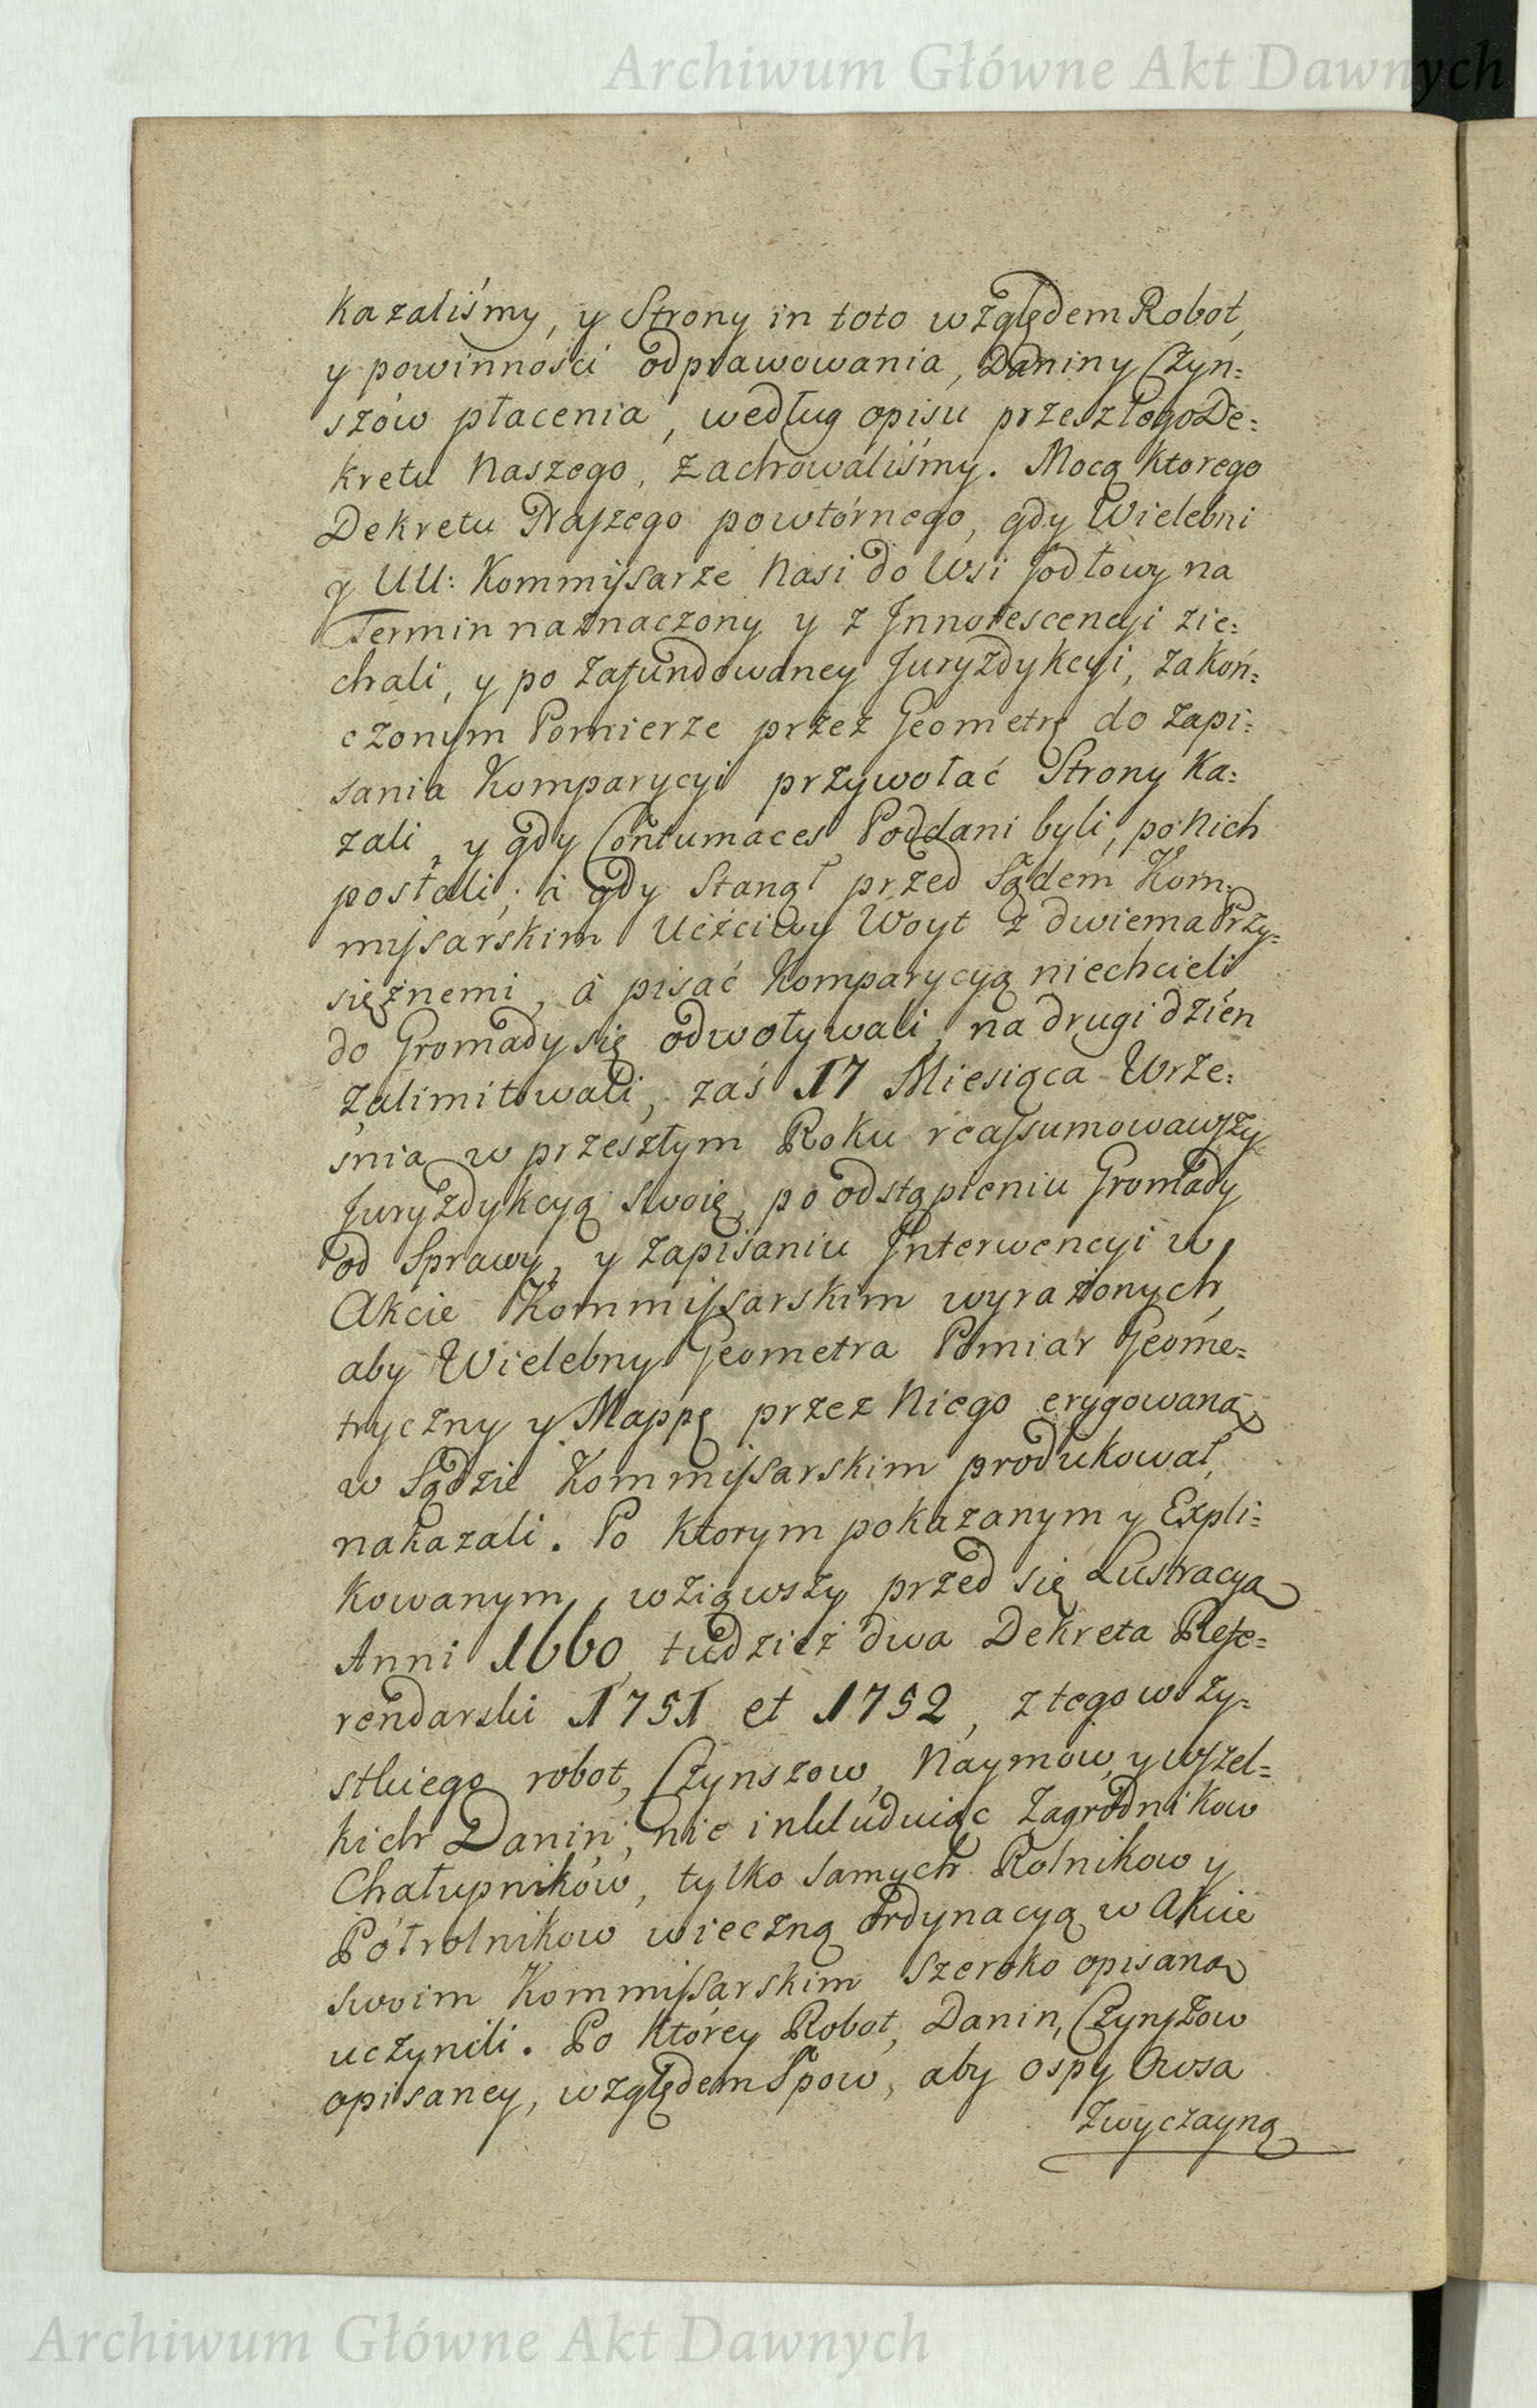 Archiwum Główne Akt Dawnych
kazaliśmy, y Strony in toto względem Robot,
y powinności odprawowania, Daniny Czyn=
szów płacenia, według opisu przeszłego De=
kretu Naszego, zachowaliśmy. Mocą ktorego
Dekretu Naszego powtórnego, gdy Wielebni
y UU: Kommissarze Nasi do Wsi Jodłowy na
Termin naznaczony y z Innotescencyi zie=
chali, y po zafundowaney Juryzdykcyi, zakoń=
czonym Pomierze przez Geometrę do zapi=
sania Komparycyi przywołać Strony ka=
zali, y gdy Contumaces Poddani byli, po Nich
posłali; a gdy Stanął przed Sądem Kom=
missarskim Uczciwy Woyt z dwiema Przy=
siężnemi, a pisać Komparycyą niechcieli
do Gromady się odwoływali, na drugi dzień
zalimitowali, zaś 17 Miesiąca Wrze=
śnia w przeszłym Roku reassumowawszy
Juryzdykcyą swoię, po odstąpieniu Gromady
od Sprawy, y zapisaniu Interwencyi w
Akcie Kommissarskim wyrażonych,
aby Wielebny Geometra Pomiar Geome=
tryczny y Mappę przez Niego erygowaną
w Sądzie Kommissarskim produkował,
nakazali. Po ktorym pokazanym y Expli=
kowanym, wziąwszy przed się Lustracyą
Anni 1660, tudzież dwa Dekreta Refe=
rendarski 1751 et 1752, z tego wszy=
stkiego robot, Czynszow, Naymow, y wszel=
kich Danin, nie inkluduiąc Zagrodnikow
Chałupników, tylko samych Rolnikow y
Półrolnikow wieczną Ordynacyą w Akcie
swoim Kommissarskim szeroko opisaną
uczynili. Po ktorey Robot, Danin, Czynszow
opisaney, względem Spow, aby ospy Owsa
zwyczayną
Archiwum Główne Akt Dawnych